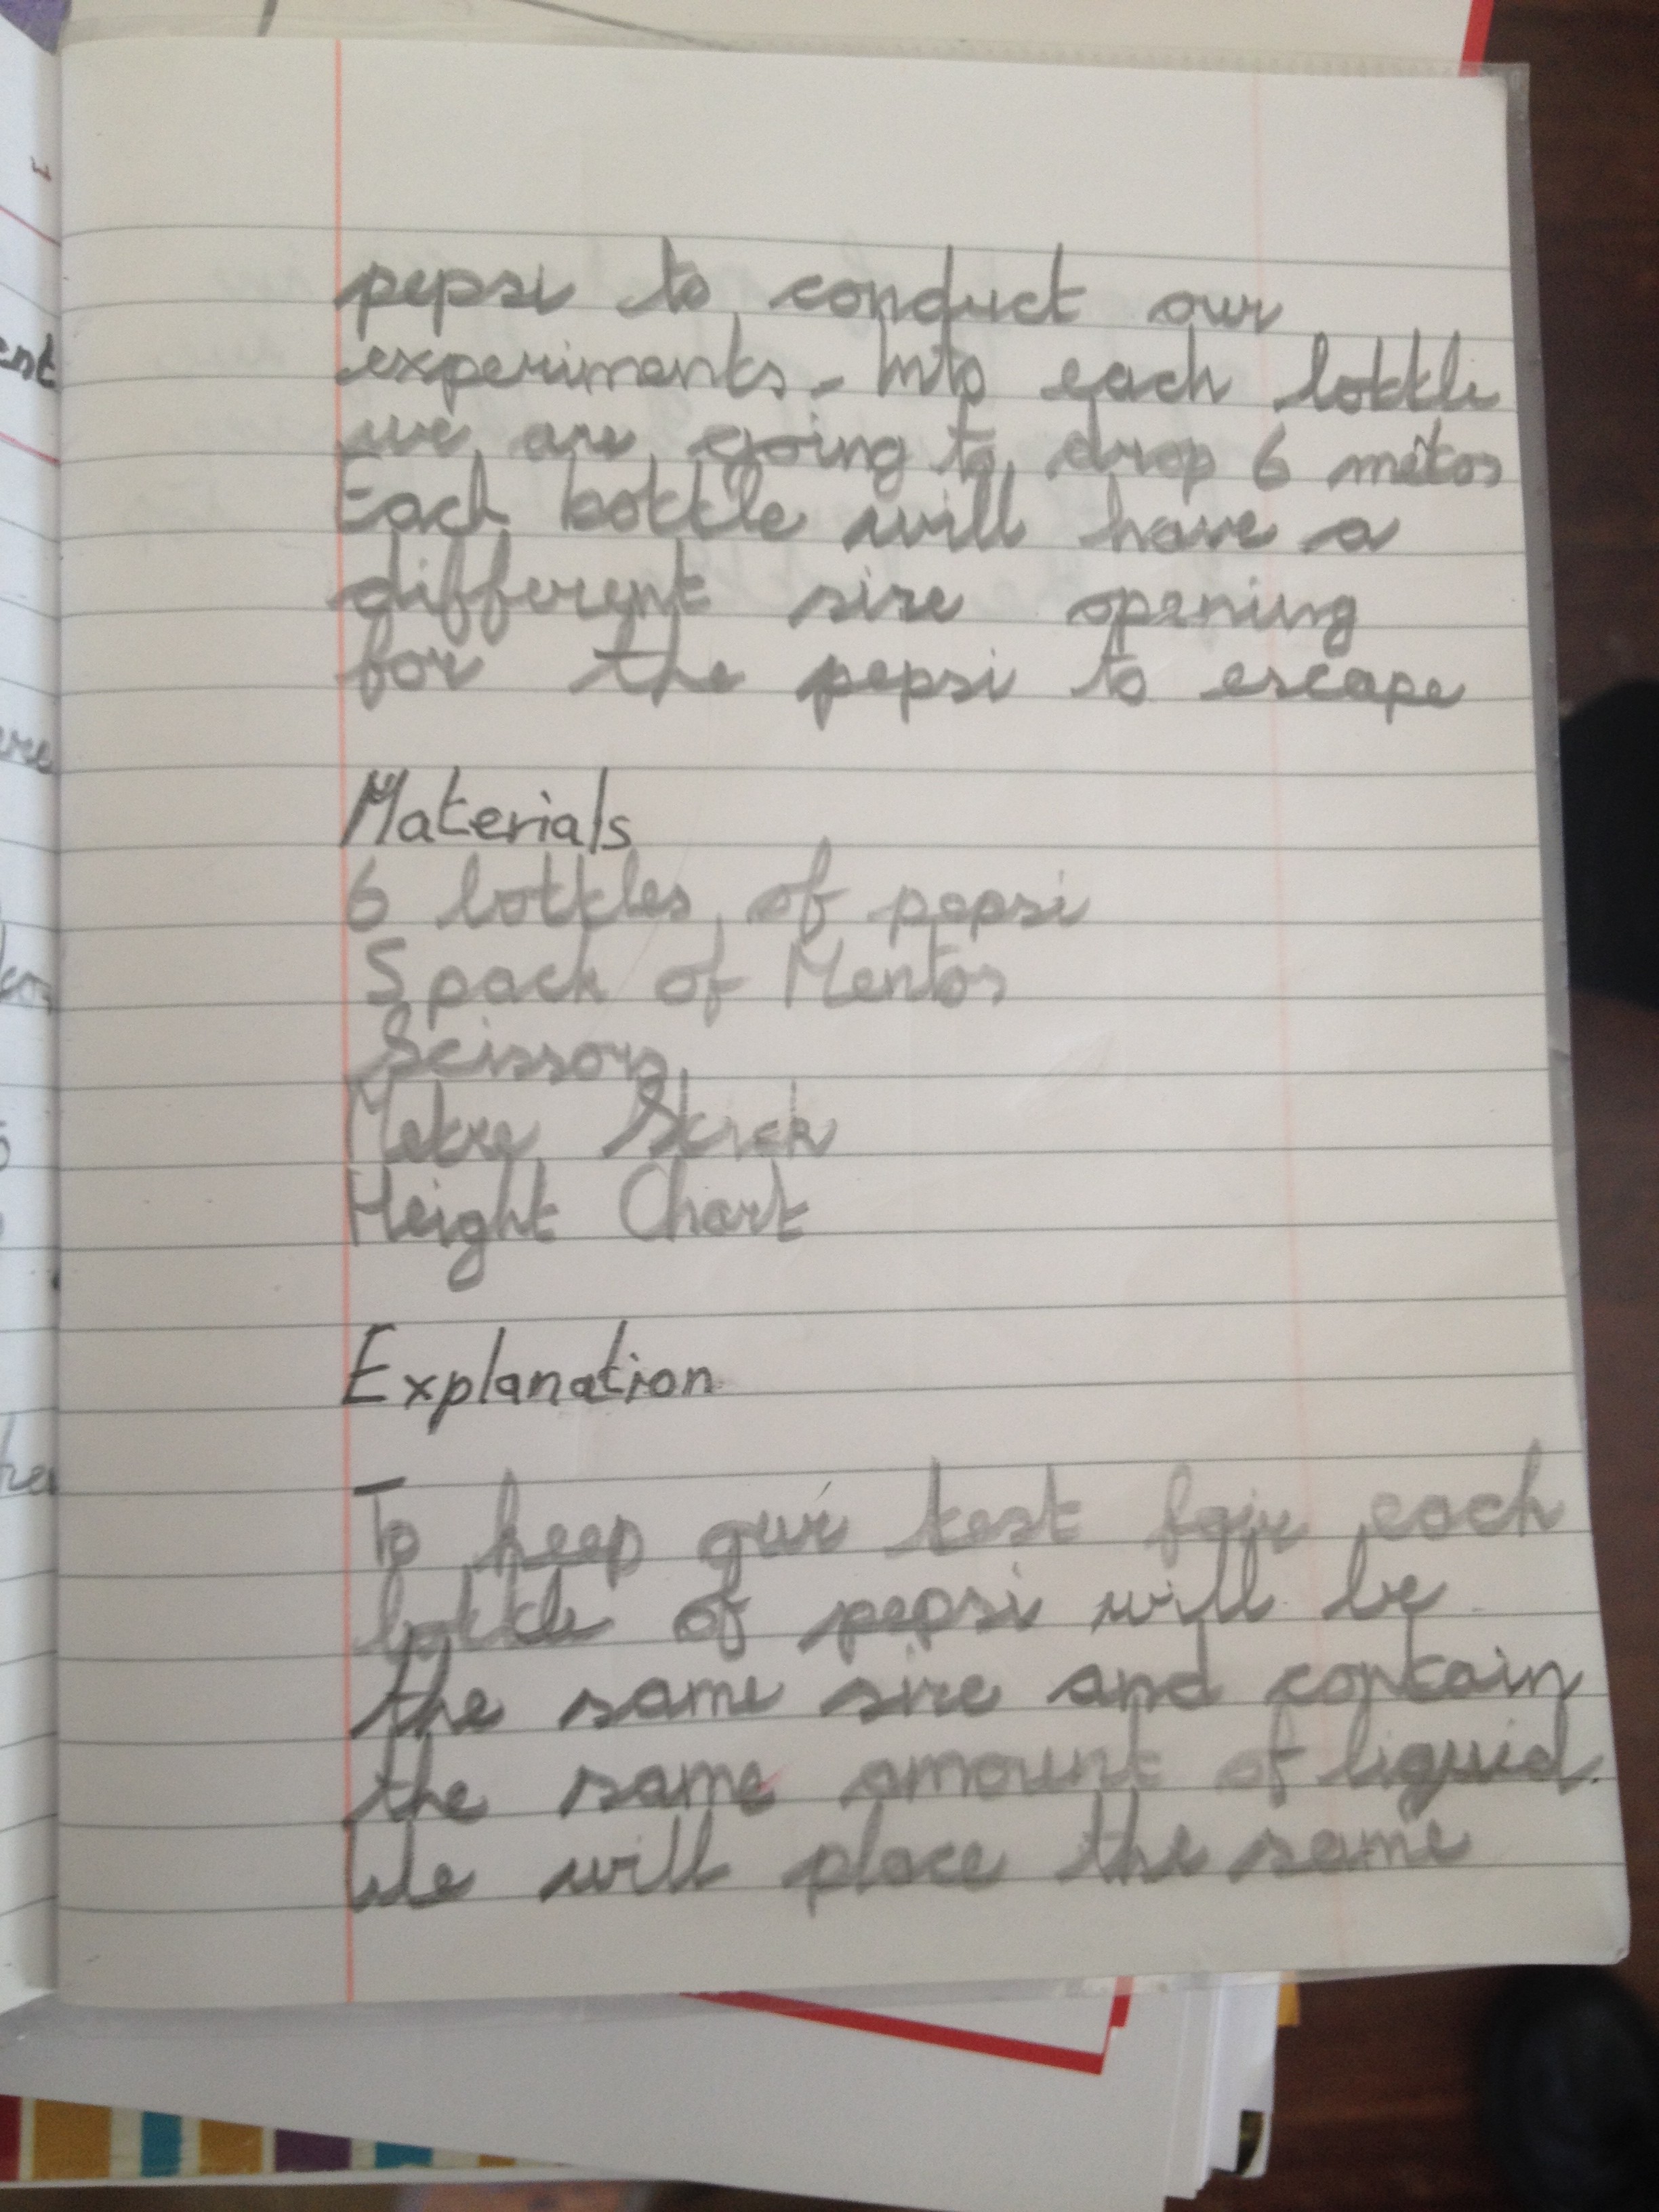 pepsi to conduct our
experiments. Into each bottle
we are going to drop 6 metos
Each bottle will have a
different size opening
for the pepsi to escape
Materials
6 bottles of pepsi
5 pack of Mentos
Scissors
Metre Stick
Height Chart
Explanation
To keep our test fair each
bottle of pepsi will be
the same size and contain
the same amount of liquid.
We will place the same